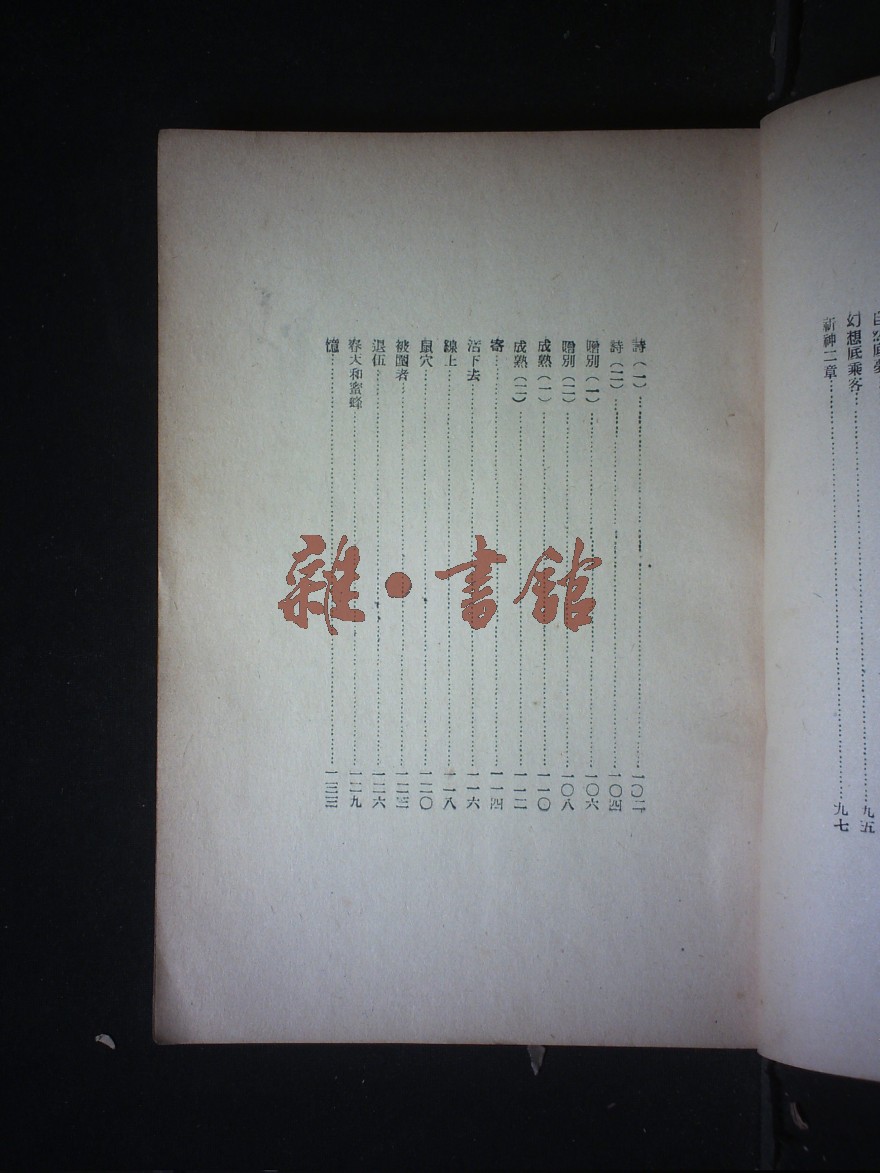 幻想底乘客……九五
祈神二章……九七
詩(一)……一〇二
詩(二)……一〇四
贈別(一)……一〇六
贈別(二)……一〇八
成熟(一)……一一〇
成熟(二)……一一二
寄……一一四
活下去……一一六
線上……一一八
鼠穴……一二〇
被圍者……一二三
退伍……一二六
春天和蜜蜂……一二九
憶……一三三
雜·書館